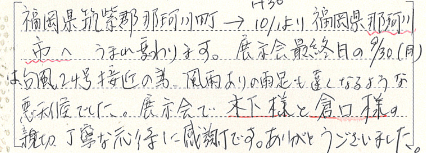 H30
福岡県筑紫郡那珂川町→10/1より福岡県那珂川
市へ うまれ変わります。展示会最終日の9/30(月)
は台風24号接近の為、風雨ありの雨足も遠くなるような
悪天候でした。展示会で 木下様と倉口様の
親切、丁寧な応待に感謝です。ありがとうございました。